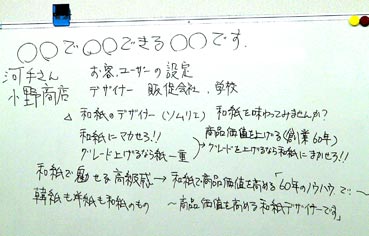 〇〇で〇〇できる〇〇です.
河手さん お客、ユーザーの設定
小野商店 デザイナー 販促会社、学校
△ 和紙のデザイナー(ソムリエ) 和紙を味わってみませんか?
和紙にマカせろ!! 商品価値を上げる(創業60年)
グレード上げるなら紙一重 グレードを上げるなら和紙にまかせろ!!
和紙で魅せる高級感 → 和紙で商品価値を高める「60年のノウハウで:〜
韓紙も洋紙も和紙のもの 〜商品価値を高める和紙デザイナーです」